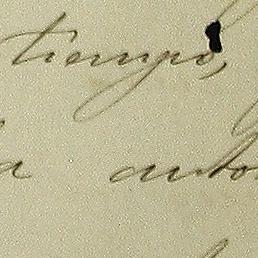 tiempo,
a autor